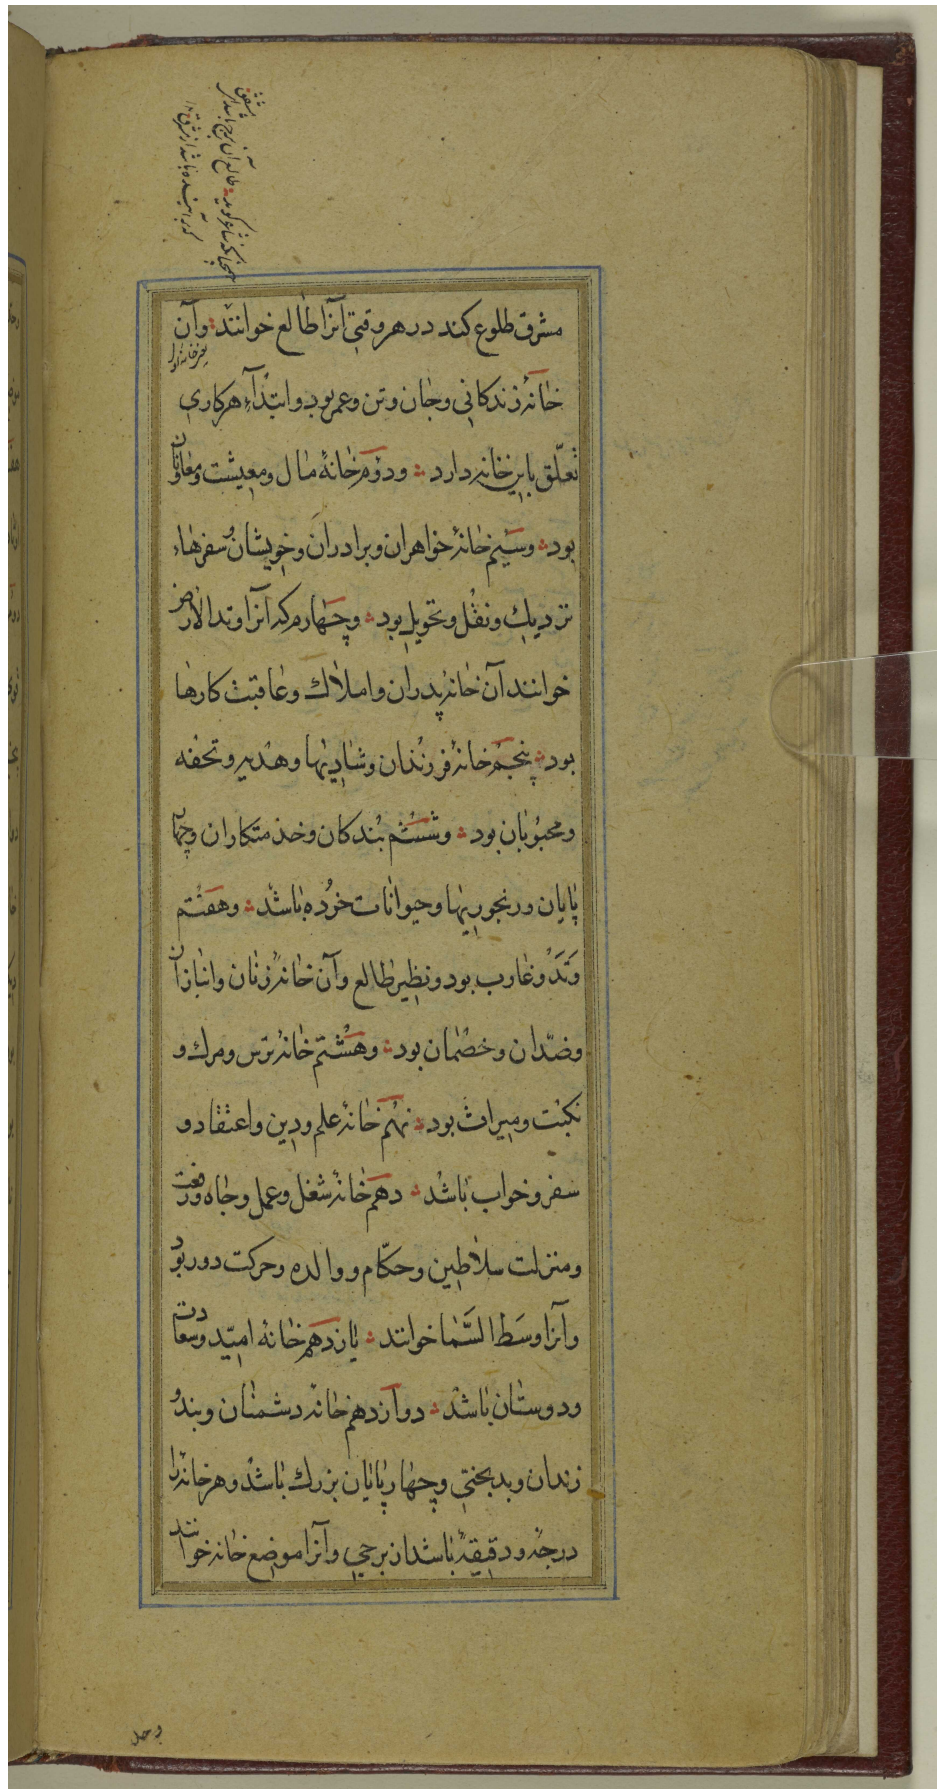 مشرق طلوع کند در هر وقتی آنرا طالع خوانند و آن
خانهٔ زندکانی و جان و تن و عمر بود و ابتداء هر کاری
تعلّق باین خانه دارد و دوم خانهٔ مال و معیشت و معاونان
بود و سیّم خانهٔ خواهران و برادران و خویشان و سفرهاء
نزدیك و نقل و تحویل بود و چهارم که آنرا وتد الارض
خوانند آن خانهٔ پدران و املاك و عاقبت کارها
بود پنجم خانهٔ فرزندان و شادیها و هدیه و تحفه
و محبوبان بود و ششم بندکان و خدمتکاران و چهار
پایان و رنجوریها و حیوانات خورده باشد و هفتم
وتد و غارب بود و نظیر طالع و آن خانهٔ زنان و انبازان
و ضدّان و خصمان بود و هشتم خانهٔ ترس و مرك و
نکبت و میراث بود نهم خانهٔ علم و دین و اعتقاد و
سفر و خواب باشد دهم خانهٔ شغل و عمل و جاه و رفعت
و منزلت سلاطین و حکّام و والده و حرکت دور بود
و آنرا وسط السّما خوانند یازدهم خانهٔ امیّد و سعادت
و دوستان باشد دوازدهم خانه دشمنان و بند و
زندان و بدبختی و چهارپایان بزرك باشد و هر خانه را
درجه و دقیقهٔ باشد از برجی و آنرا موضع خانه خوانند